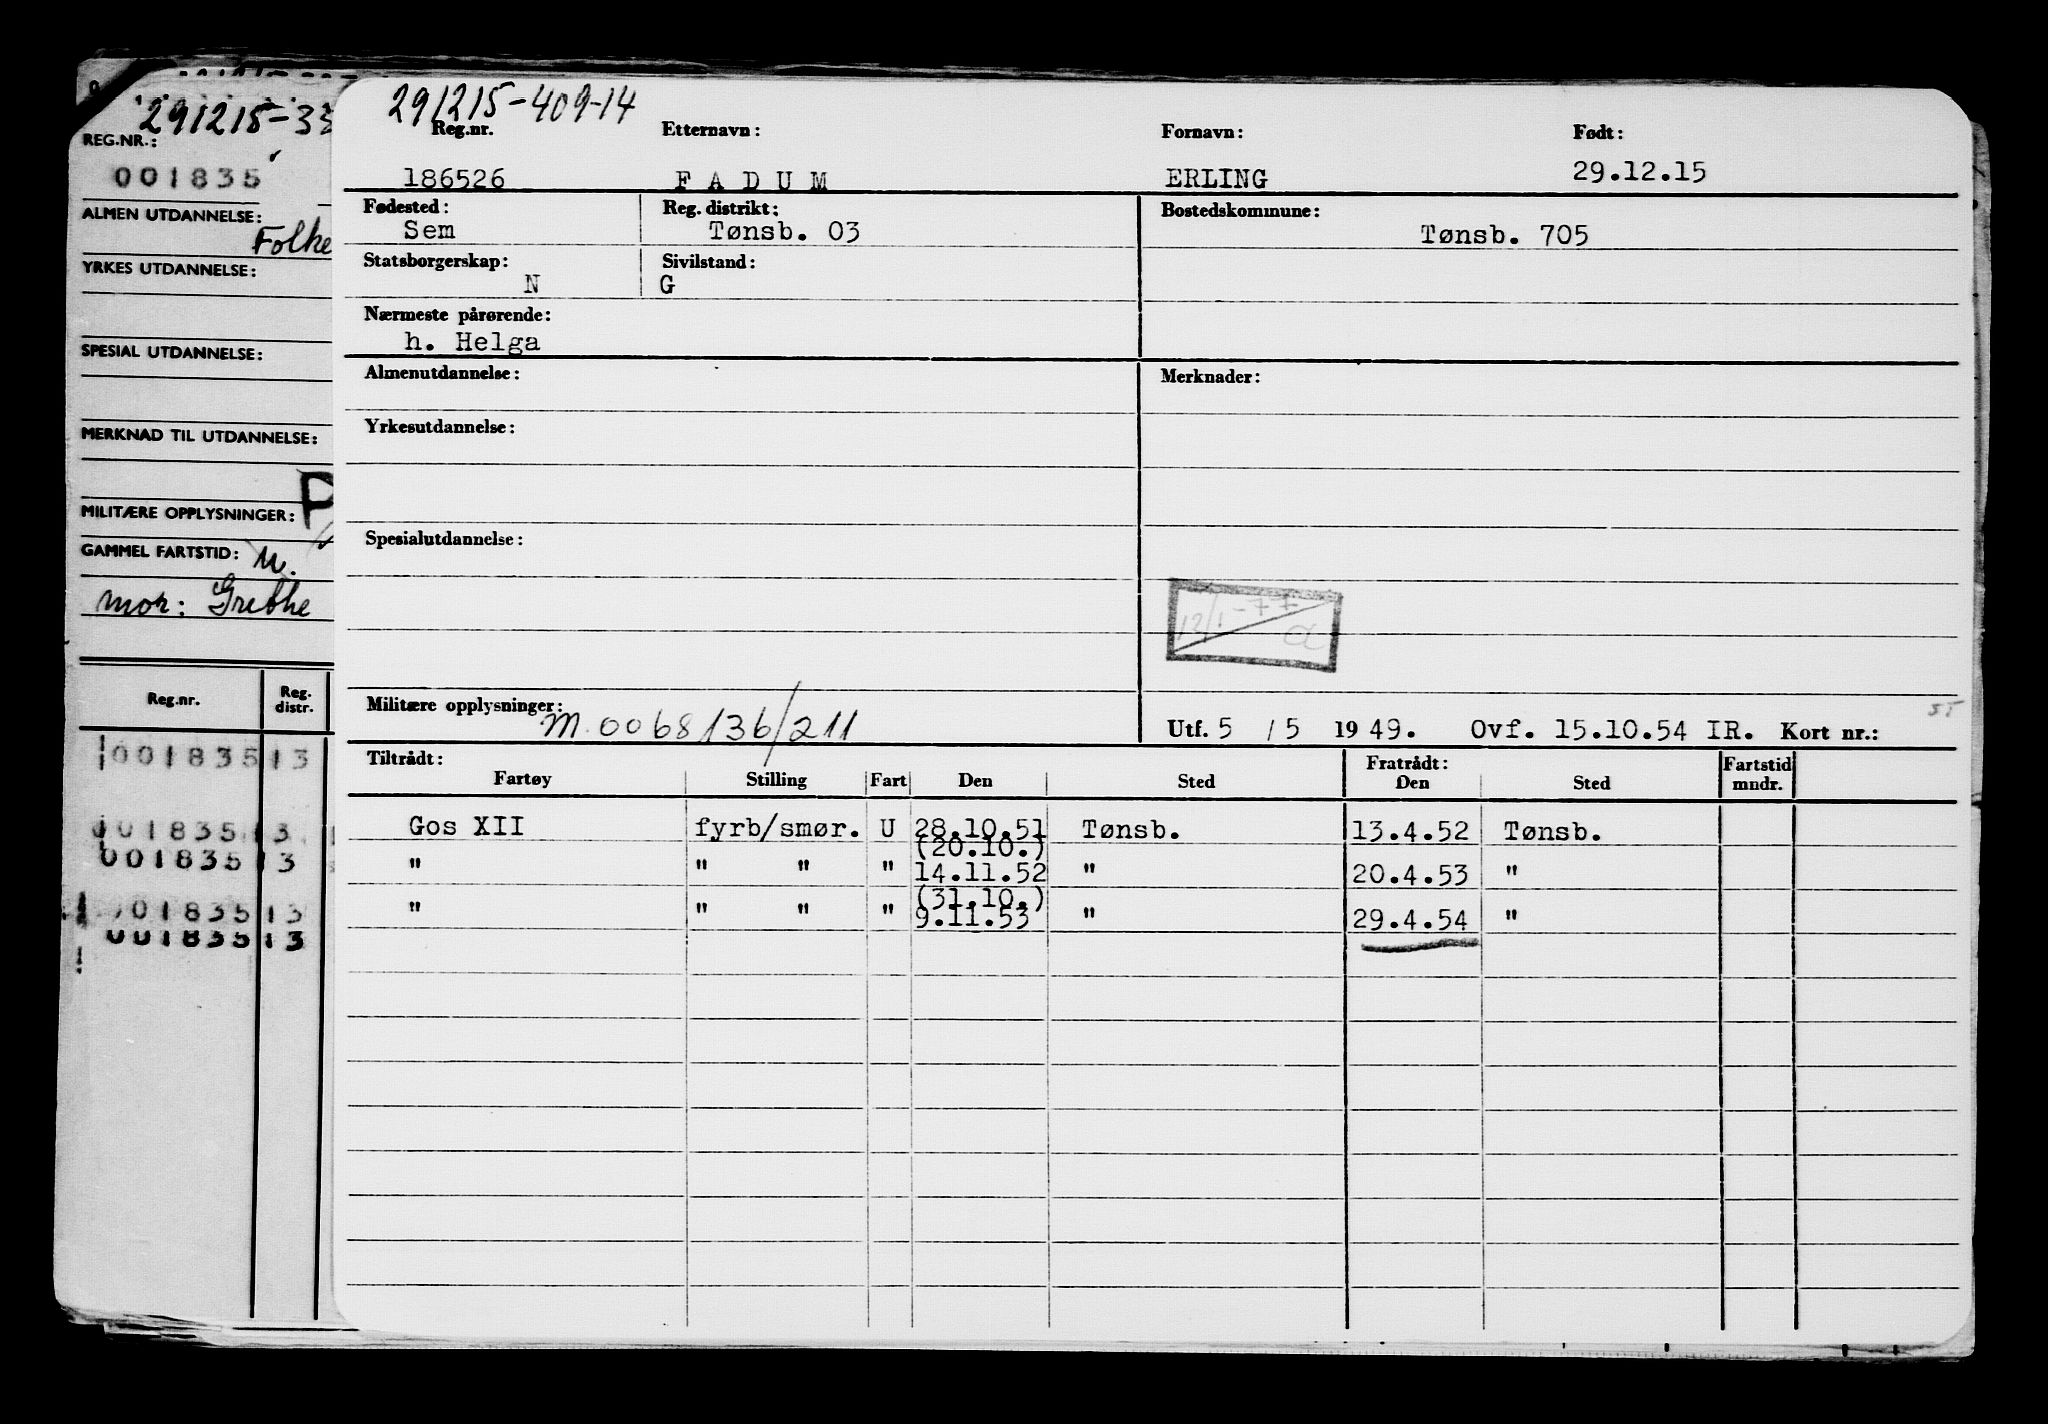 291215-33
REG.NR.:
001835
ALMEN UTDANNELSE:
Folke
YRKES UTDANNELSE:
SPESIAL UTDANNELSE:
MERKNAD TIL UTDANNELSE:
P
MILITÆRE OPPLYSNINGER:
GAMMEL FARTSTID: u.
mor: Grethe
Reg.nr. Reg. distr.
001835 13
001835 13
001835 13
001835 13
001835 13
291215-409-14
Reg.nr. Etternavn: Fornavn: Født:
186526 FADUM ERLING 29.12.15
Fødested: Reg. distrikt: Bostedskommune:
Sem Tønsb. 03 Tønsb. 705
Statsborgerskap: Sivilstand:
N G
Nærmeste pårørende:
h. Helga
Almenutdannelse: Merknader:
Yrkesutdannelse:
Spesialutdannelse:
12/1-77
a
Militære opplysninger: M.0068136/211
Utf. 5 / 5 1949. Ovf. 15.10.54 IR. Kort nr.:
Tiltrådt: Fratrådt: Fartstid
Fartøy Stilling Fart Den Sted Den Sted mndr.
Gos XII fyrb/smør. U 28.10.51 Tønsb. 13.4.52 Tønsb.
(20.10.)
" " " " 14.11.52 " 20.4.53 "
(31.10.)
" " " " 9.11.53 " 29.4.54 "